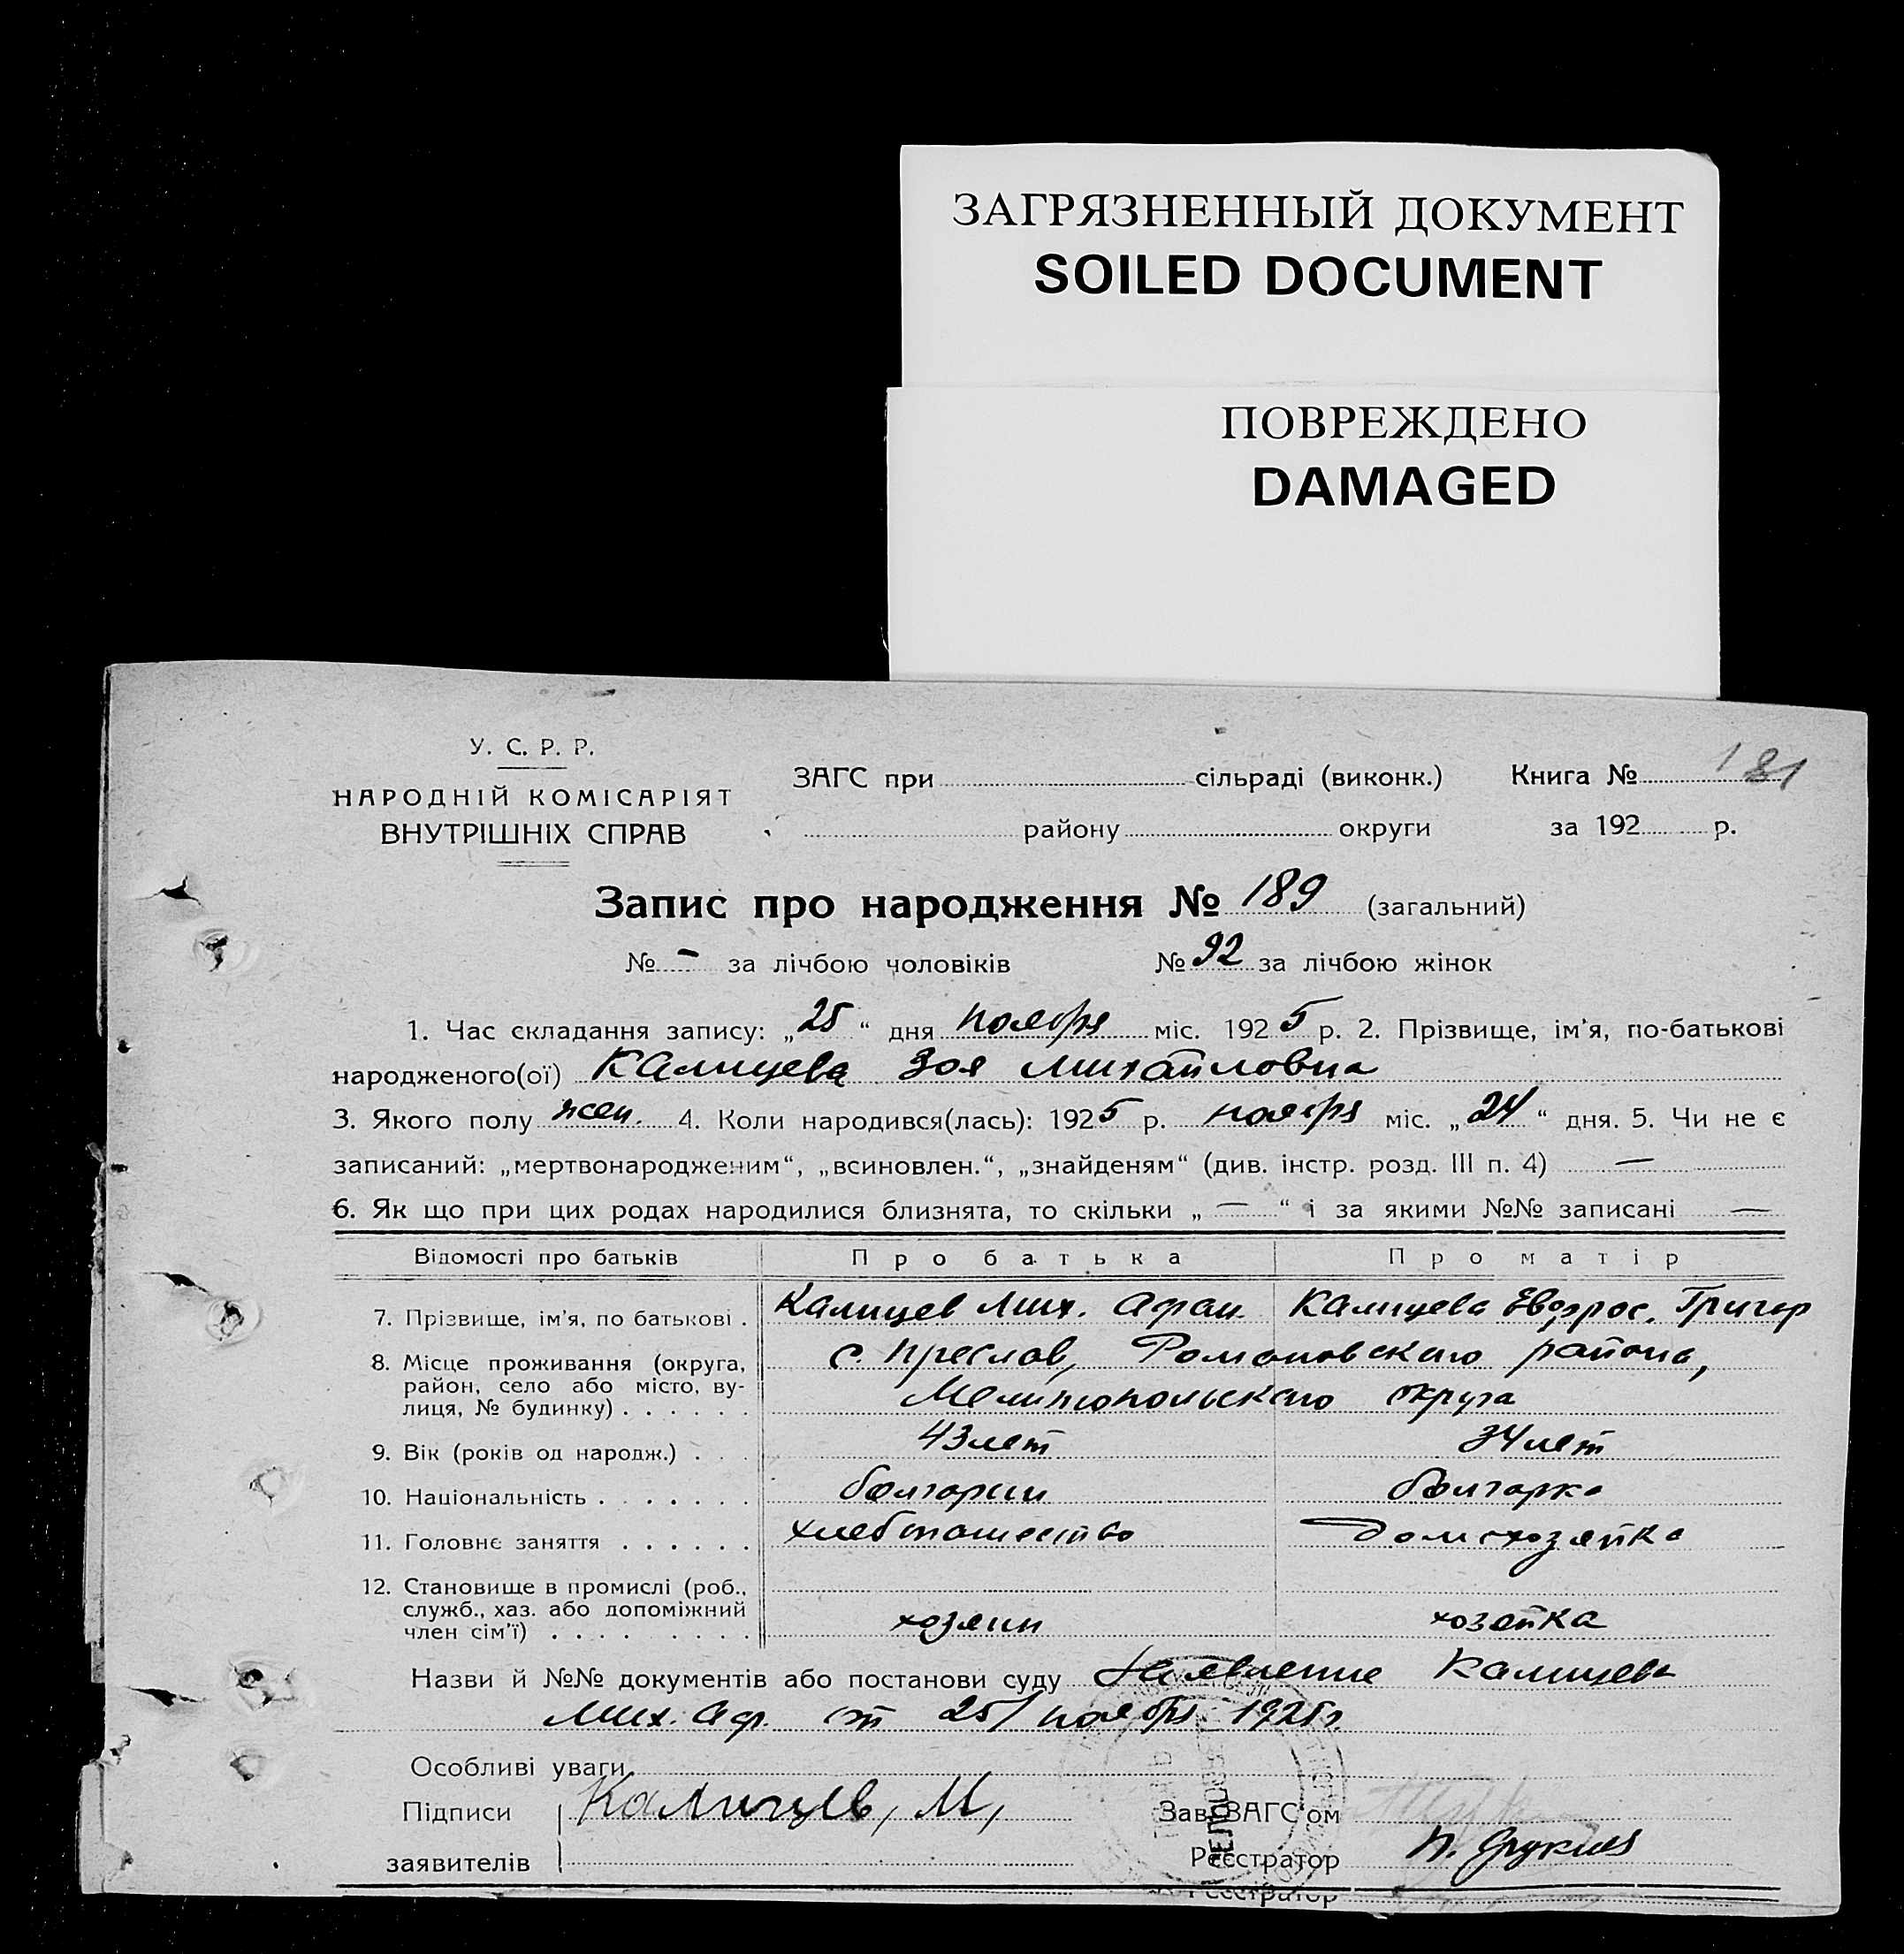 ЗАГРЯЗНЕННЫЙ ДОКУМЕНТ
SOILED DOCUMENT
ПОВРЕЖДЕНО
DAMAGED
У. С. Р. Р.
НАРОДНІЙ КОМІСАРІЯТ
ВНУТРІШНІХ СПРАВ
ЗАГС при сільраді (виконк.) Книга № 181
району округи за 192 р.
Запис про народження № 189 (загальний)
№ - за лічбою чоловіків № 92 за лічбою жінок
1. Час складання запису: „25“ дня ноября міс. 1925 р. 2. Прізвище, ім’я, по-батькові
народженого(ої) Калицева Зоя Михайловна
3. Якого полу жен. 4. Коли народився(лась): 1925 р. ноября міс. „24“ дня. 5. Чи не є
записаний: „мертвонародженим“, „всиновлен.“, „знайденям“ (див. інстр. розд. III п. 4) —
6. Як що при цих родах народилися близнята, то скільки „—“ і за якими №№ записані —
Відомості про батьків Про батька Про матір
7. Прізвище, ім’я, по батькові . Калицев Мих. Афан. Калицева Григор
8. Місце проживання (округа, с. Преслав, Романовскаго района,
район, село або місто, ву-
лиця, № будинку) . . . . . . Мелитопольскаго округа
9. Вік (років од народж.) . . . 43 лет 34 лет
10. Національність . . . . . . . болгарин болгарка
11. Головнє заняття . . . . . . хлебопашество домохозяйка
12. Становище в промислі (роб.,
служб., хаз. або допоміжний
член сім’ї) . . . . . . . . . хозяин хозяйка
Назви й №№ документів або постанови суду Заявление Калицева
Мих. Аф. от 25/ ноября 1925 г.
Особливі уваги
Підписи Калицев, М, Зав. ЗАГС’ом
заявителів Реєстратор П.
Реєстратор